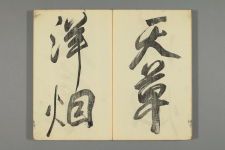 天草
洋烟